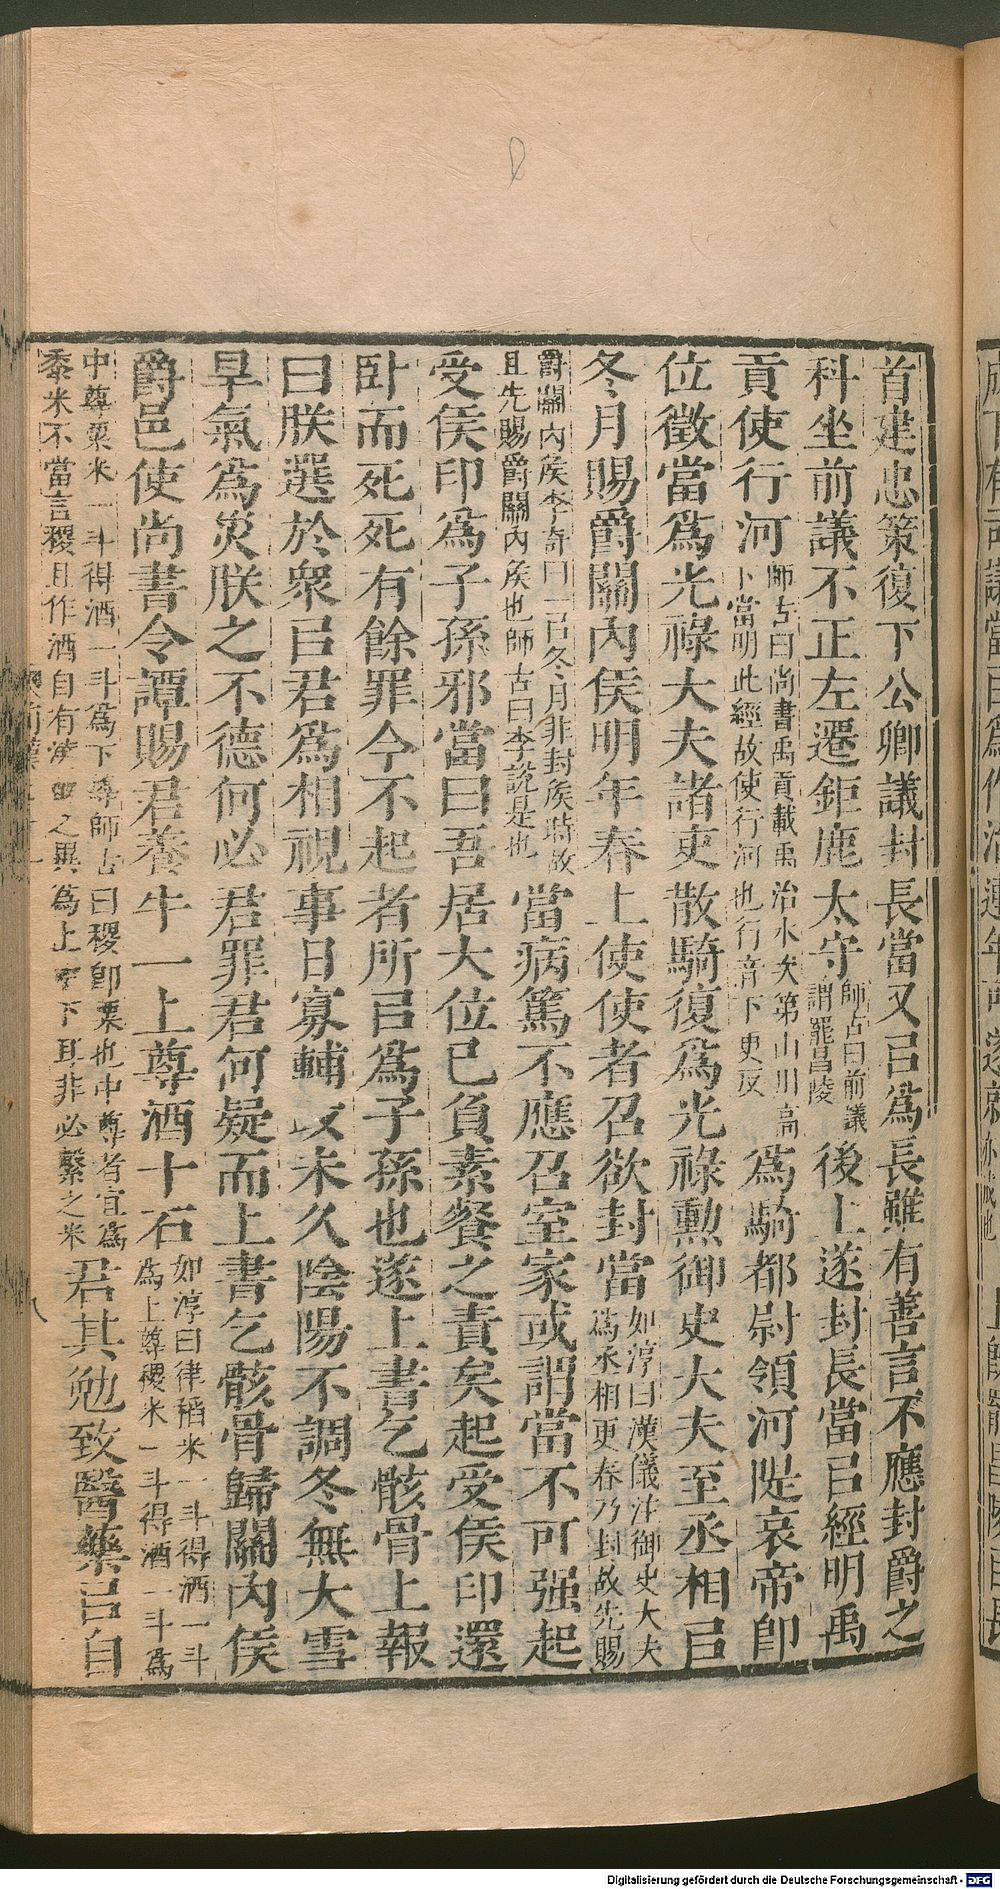 首建忠策復下公卿議封長當又㠯爲長雖有善言不應封爵之
科坐前議不正左遷鉅鹿太守師古曰前議謂罷昌陵後上遂封長當㠯經明禹
貢使行河師古曰尚書禹貢載禹治水次第山川高下當明此經故使行河也行音下更反爲騎都尉領河隄哀帝卽
位徵當爲光祿大夫諸吏散騎復爲光祿勳御史大夫至丞相㠯
冬月賜爵關內侯明年春上使使者召欲封當如淳曰漢儀注御史大夫爲丞相更春乃封故先賜
爵關內侯李奇曰㠯冬月非封侯時故且先賜爵關內侯也師古曰李說是也當病篤不應召室家或謂當不可强起
受侯印爲子孫邪當曰吾居大位已負素餐之責矣起受侯印還
臥而死死有餘罪今不起者所㠯爲子孫也遂上書乞骸骨上報
曰朕選於衆㠯君爲相視事日寡輔政未久陰陽不調冬無大雪
旱氣爲災朕之不德何必君罪君何疑而上書乞骸骨歸關內侯
爵邑使尚書令譚賜君養牛一上尊酒十石如淳曰律稻米一斗得酒一斗爲上尊稷米一斗得酒一斗爲
中尊粟米一斗得酒一斗爲下尊師古曰稷卽粟也中尊者宜爲黍米不當言稷且作酒自有澆之異爲上下耳非必繫之米君其勉致醫藥㠯自
八
Digitalisierung gefördert durch die Deutsche Forschungsgemeinschaft - DFG